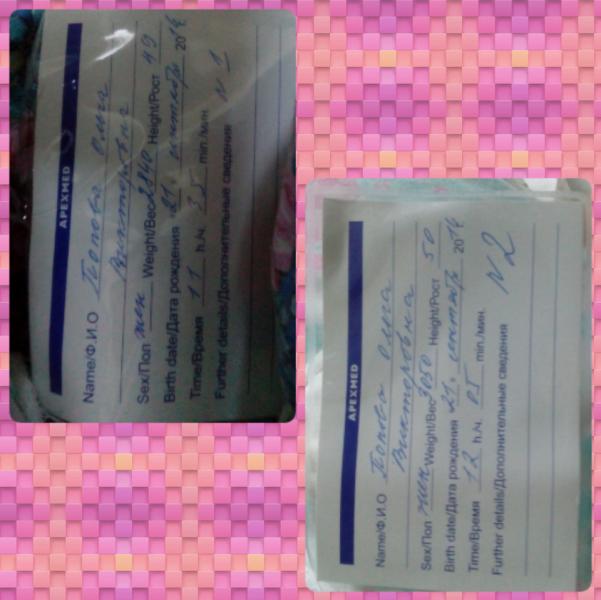 APEXMED
Name/Ф.И.О Попова Ольга
Викторовна
Sex/Пол жен Weight/Вес 2840 Height/Рост 49
Birth date/Дата рождения 21. сентябрь 2014
Time/Время 11 h.ч. 35 min/мин.
Further details/Дополнительные сведения N 1
APEXMED
Name/Ф.И.О Попова Ольга
Викторовна
Sex/Пол жен Weight/Вес 3050 Height/Рост 50
Birth date/Дата рождения 21. сентябрь 2014
Time/Время 12 h.ч. 05 min./мин.
Further details/Дополнительные сведения N 2